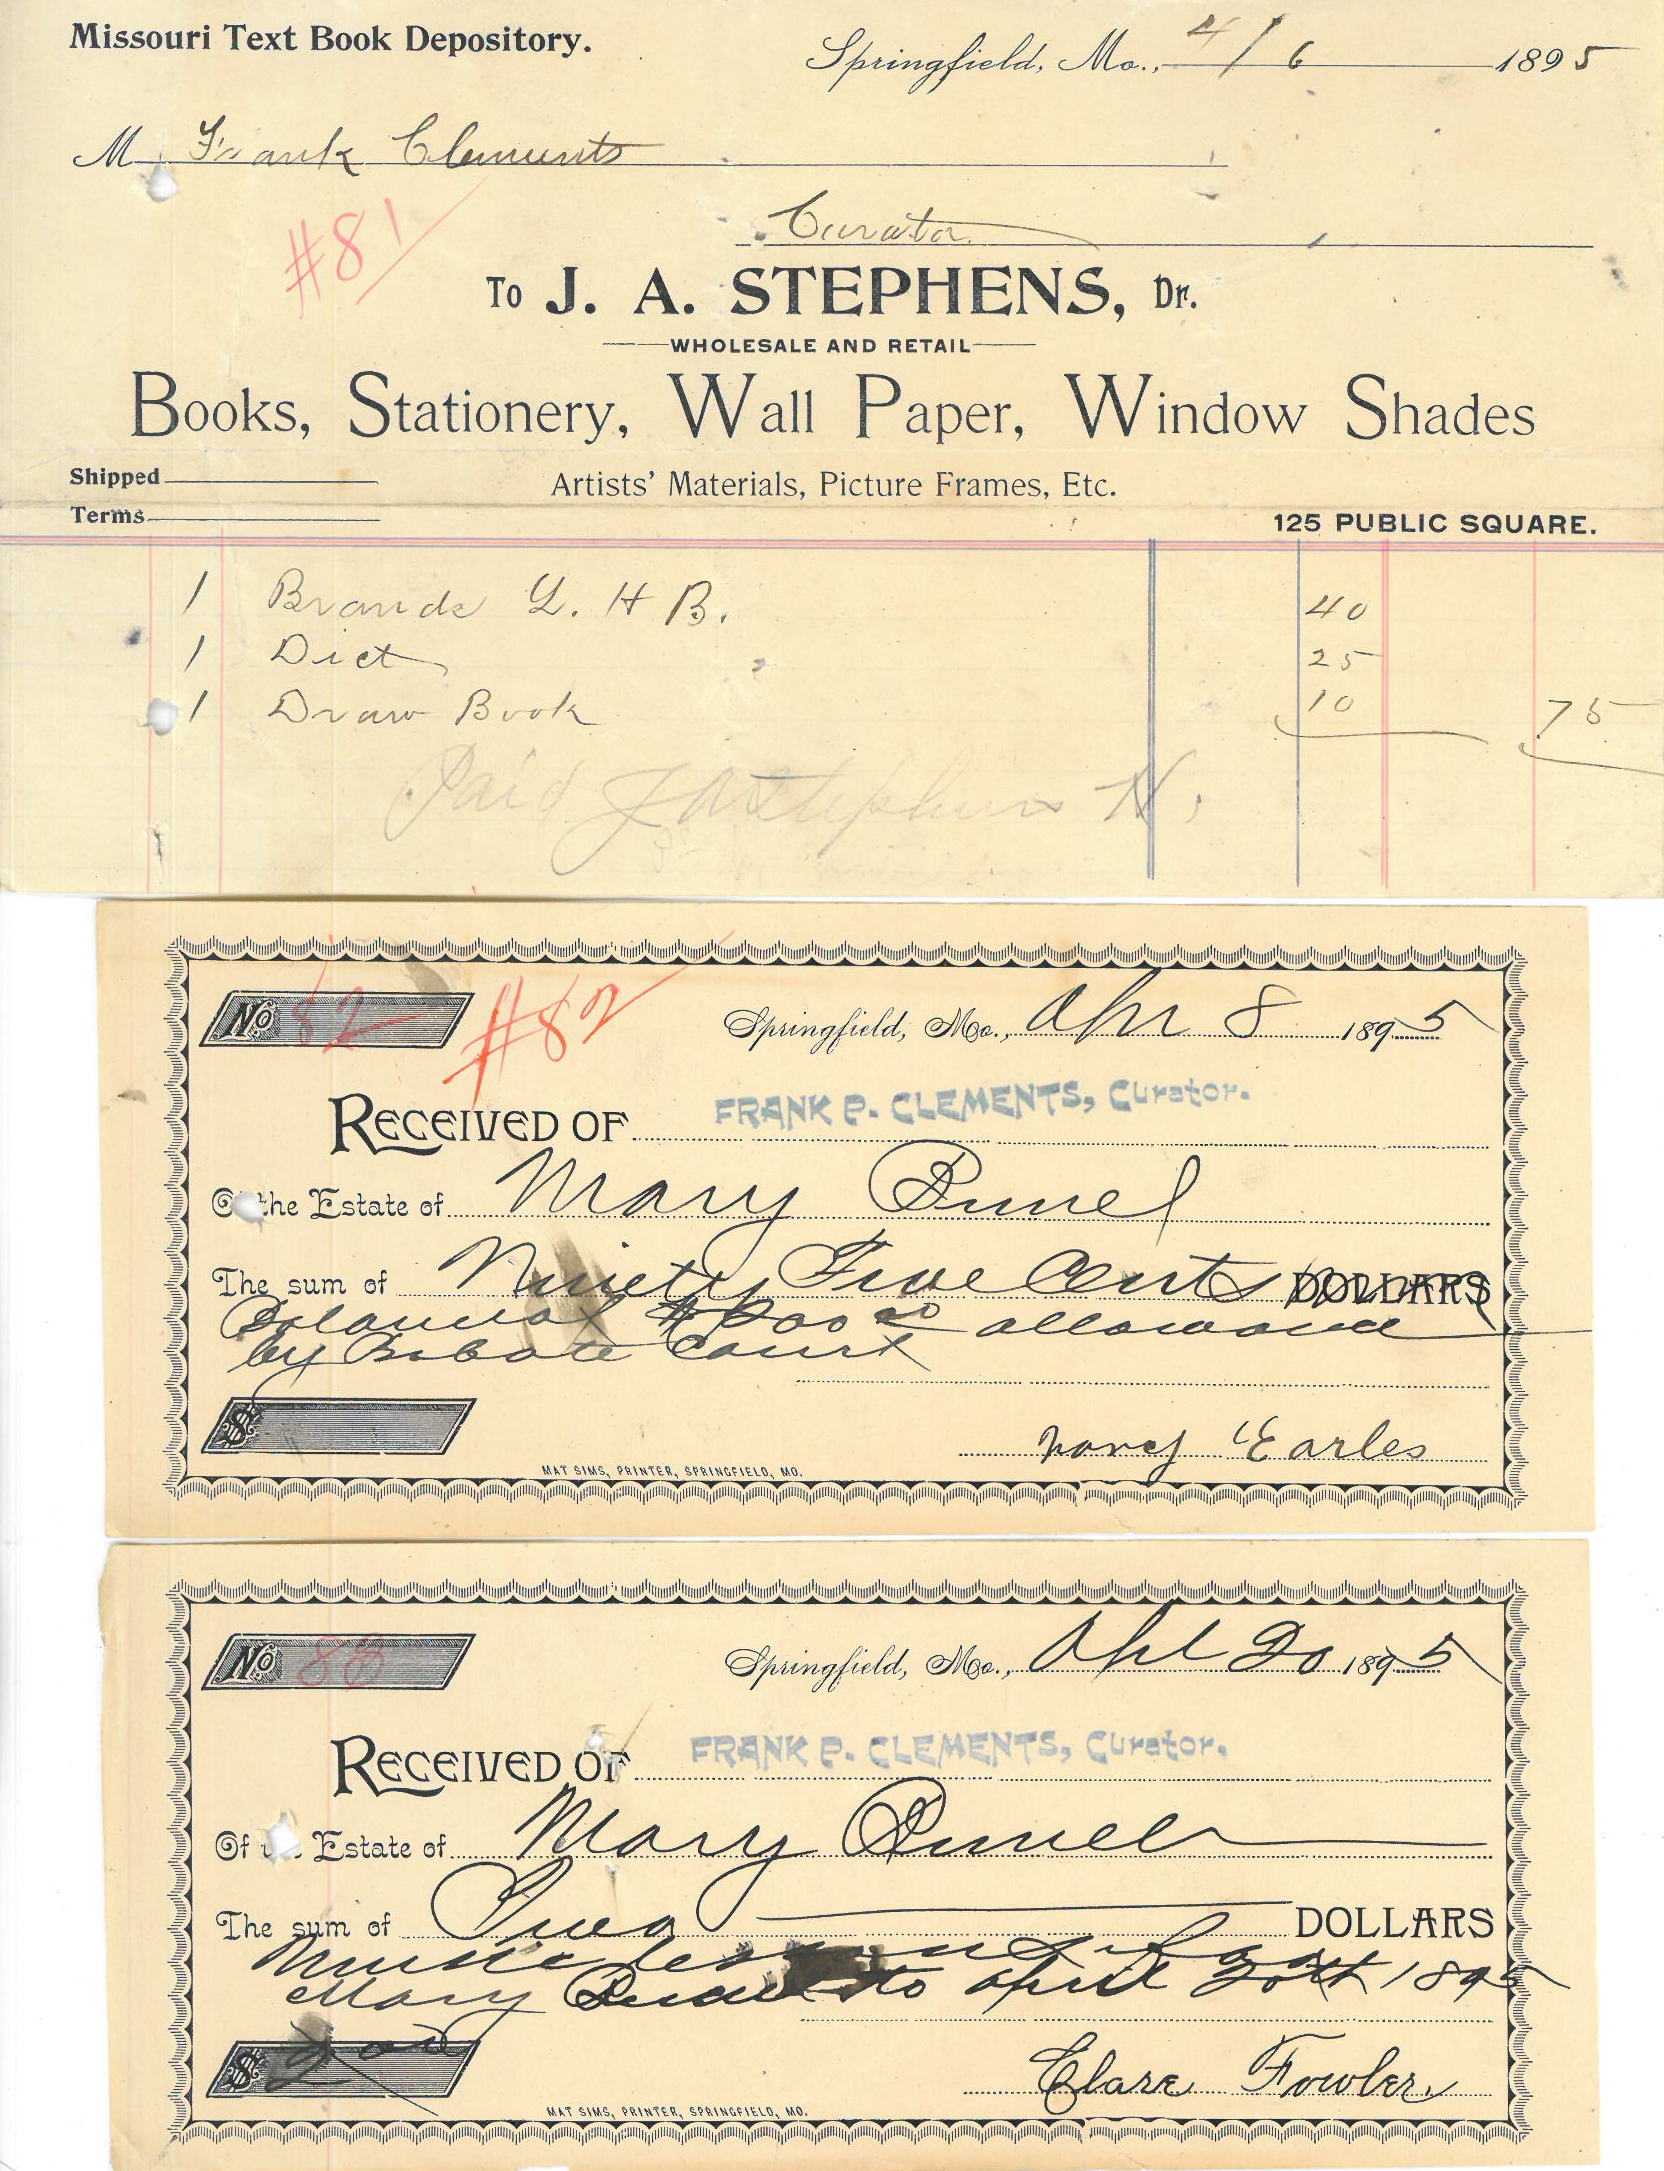 Missouri Text Book Depository.
Springfield, Mo., 4/6 1895
M Frank Clements
Curator
#81
To J. A. STEPHENS, Dr.
WHOLESALE AND RETAIL
Books, Stationery, Wall Paper, Window Shades
Shipped
Artists' Materials, Picture Frames, Etc.
Terms
125 PUBLIC SQUARE.
1 Brands L. H B. 40
1 Dict 25
1 Draw Book 10 75
Paid J A Stephens
No 82 #82 Springfield, Mo., Apr 8 1895
RECEIVED OF FRANK P. CLEMENTS, Curator.
Of the Estate of Mary
The sum of Ninety Five Cents DOLLARS
Balance of $200 00 allowance
by Probate Court
$
Nancy Earles
MAT SIMS, PRINTER, SPRINGFIELD, MO.
No 83 Springfield, Mo., Apl 20 1895
RECEIVED OF FRANK P. CLEMENTS, Curator.
Of Estate of Mary
The sum of Two DOLLARS
Music lessons for
Mary to April 20th 1895
$ 2 00
Clare Fowler.
MAT SIMS, PRINTER, SPRINGFIELD, MO.